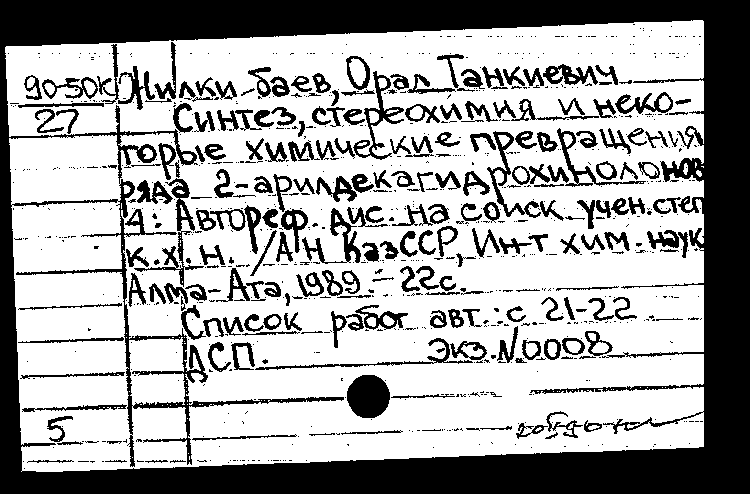 90-50К Жилки-баев, Орал Танкиевич
27 Синтез, стереохимия и неко-
торые химические превращения
ряда 2-арилдекагидрохинолонов
4: Автореф. дис. на соиск. учен. степ
к.х.н. / АН КазССР, Ин-т хим. наук
Алма-Ата, 1989. - 22с.
Список работ авт.: с 21-22.
ДСП. Экз. N.0008
5